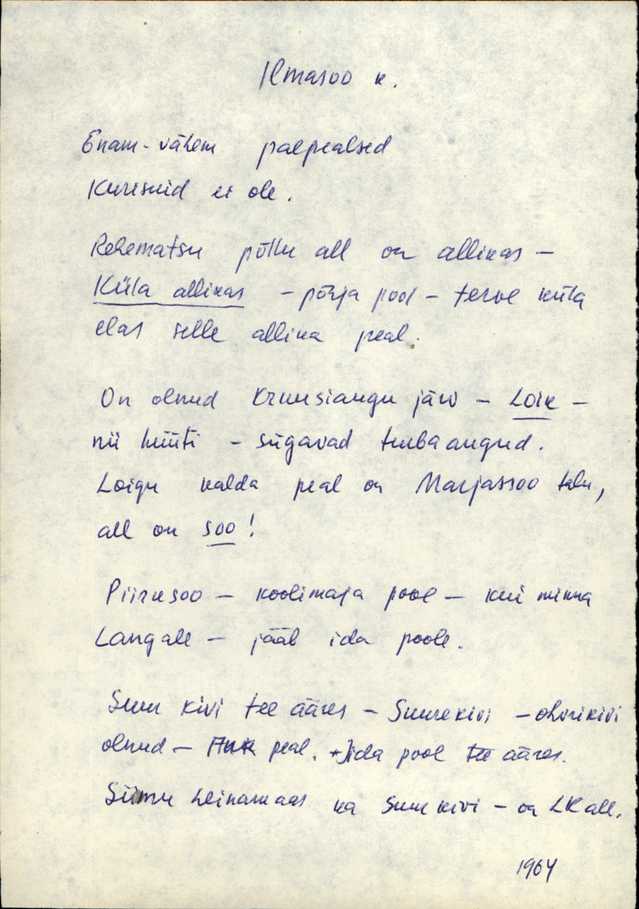 Ilmasoo k.
Enam-vähem paepealsed
Kuresuid ei ole.
Rehematsu põllu all on allikas –
Küla allikas – põhja pool – terve küla
elas selle allika peal.
On olnud Kruusiaugu järv – Loik –
nii hüüti – sügavad turbaaugud.
Loigu kalda peal on Marjassoo talu,
all on soo!
Piirusoo – koolimaja pool – kui minna
Langale – jääb ida poole.
Suur kivi tee ääres – Suurekivi – ohvrikivi
olnud – peal. Ida pool tee ääres.
Siimu heinamaas ka Suur kivi – on LK all.
1964